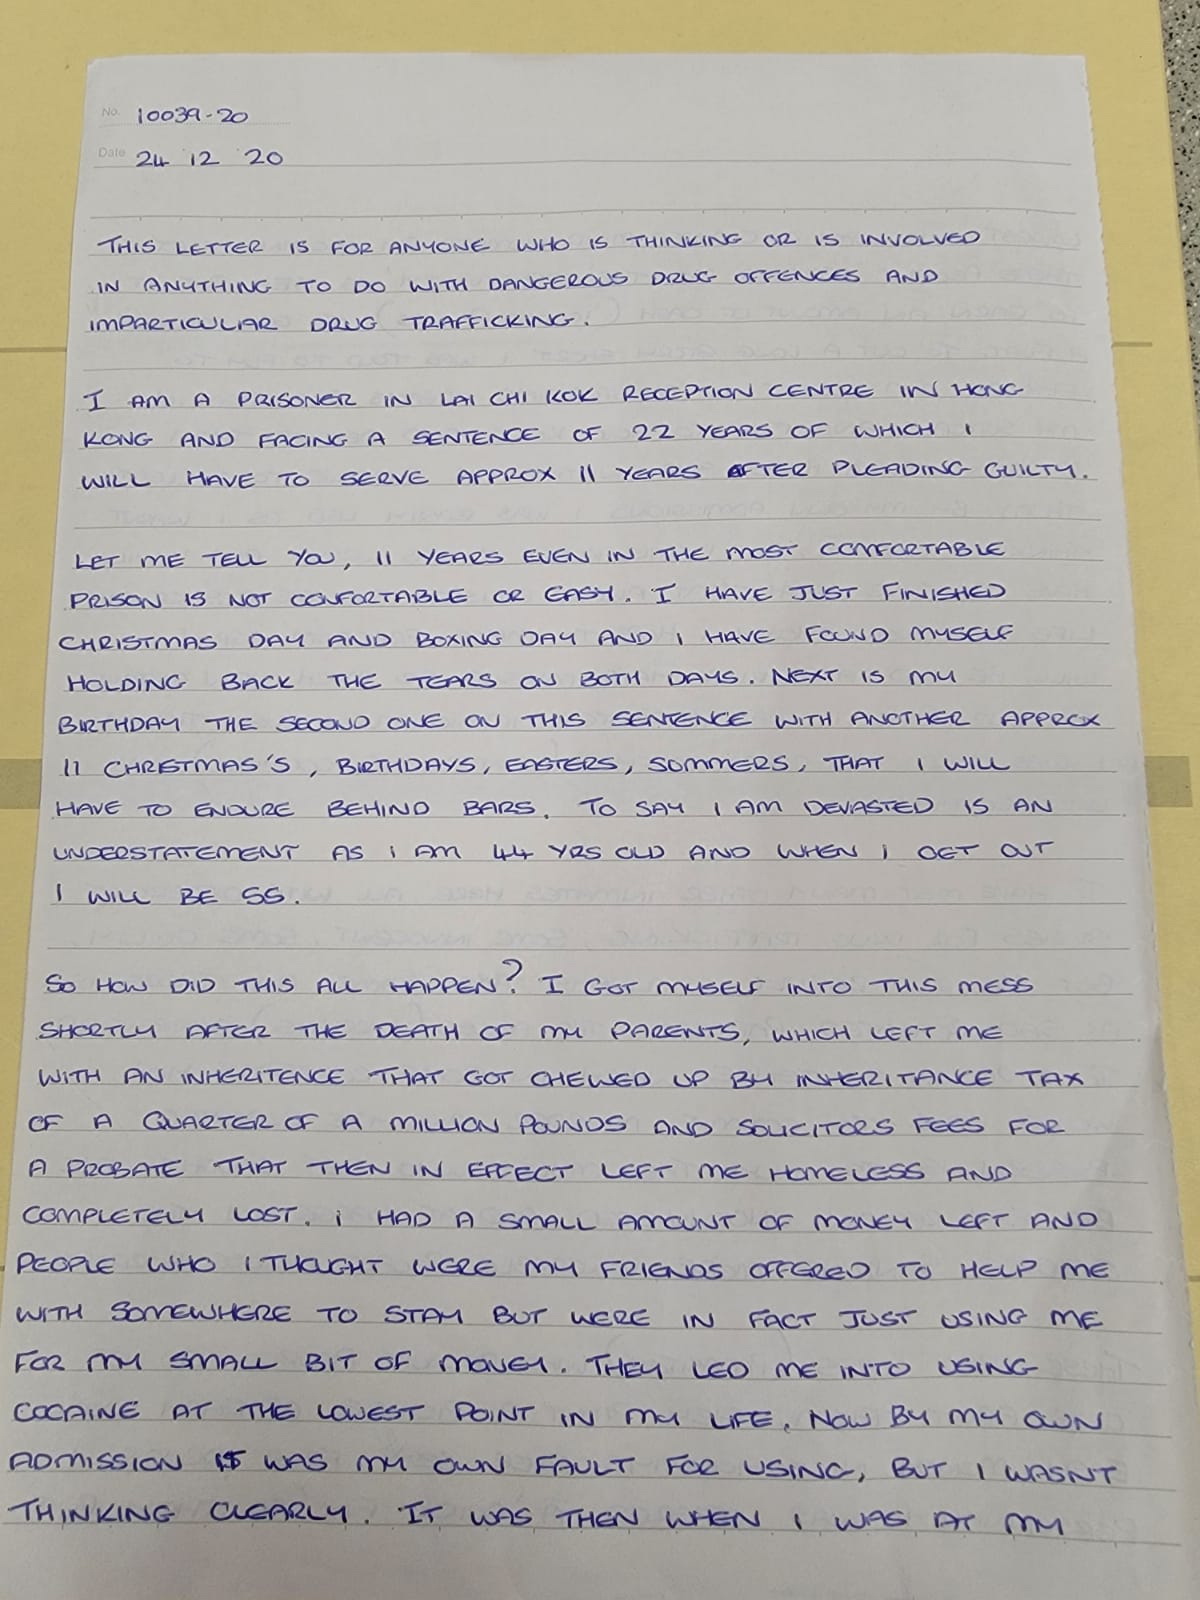 No. 10039-20
Date 24 12 20
THIS LETTER IS FOR ANYONE WHO IS THINKING OR IS INVOLVED
IN ANYTHING TO DO WITH DANGEROUS DRUG OFFENCES AND
IMPARTICULAR DRUG TRAFFICKING.
I AM A PRISONER IN LAI CHI KOK RECEPTION CENTRE IN HONG
KONG AND FACING A SENTENCE OF 22 YEARS OF WHICH I
WILL HAVE TO SERVE APPROX 11 YEARS AFTER PLEADING GUILTY.
LET ME TELL YOU, 11 YEARS EVEN IN THE MOST COMFORTABLE
PRISON IS NOT COMFORTABLE OR EASY. I HAVE JUST FINISHED
CHRISTMAS DAY AND BOXING DAY AND I HAVE FOUND MYSELF
HOLDING BACK THE TEARS ON BOTH DAYS. NEXT IS MY
BIRTHDAY THE SECOND ONE ON THIS SENTENCE WITH ANOTHER APPROX
11 CHRISTMAS'S, BIRTHDAYS, EASTERS, SOMMERS, THAT I WILL
HAVE TO ENDURE BEHIND BARS. TO SAY I AM DEVASTED IS AN
UNDERSTATEMENT AS I AM 44 YRS OLD AND WHEN I GET OUT
I WILL BE 55.
SO HOW DID THIS ALL HAPPEN? I GOT MYSELF INTO THIS MESS
SHORTLY AFTER THE DEATH OF MY PARENTS, WHICH LEFT ME
WITH AN INHERITENCE THAT GOT CHEWED UP BY INHERITANCE TAX
OF A QUARTER OF A MILLION POUNDS AND SOLICITORS FEES FOR
A PROBATE THAT THEN IN EFFECT LEFT ME HOMELESS AND
COMPLETELY LOST. I HAD A SMALL AMOUNT OF MONEY LEFT AND
PEOPLE WHO I THOUGHT WERE MY FRIENDS OFFERED TO HELP ME
WITH SOMEWHERE TO STAY BUT WERE IN FACT JUST USING ME
FOR MY SMALL BIT OF MONEY. THEY LED ME INTO USING
COCAINE AT THE LOWEST POINT IN MY LIFE. NOW BY MY OWN
ADMISSION IT WAS MY OWN FAULT FOR USING, BUT I WASNT
THINKING CLEARLY. IT WAS THEN WHEN I WAS AT MY